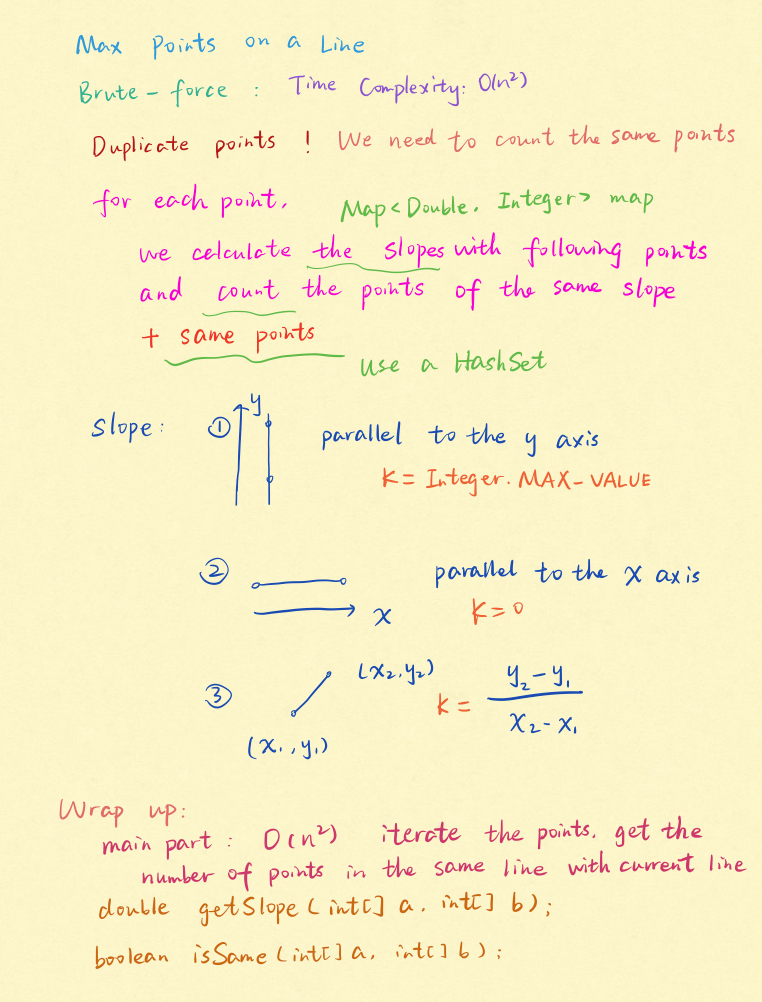 Max Points on a Line
Brute-force : Time Complexity: O(n²)
Duplicate points ! We need to count the same points
for each point, Map<Double, Integer> map
we calculate the slopes with following points
and count the points of the same slope
+ same points
use a HashSet
Slope: ① y parallel to the y axis
K = Integer.MAX-VALUE
② parallel to the x axis
x K=0
③ (x₂,y₂) K = y₂-y₁
x₂-x₁
(x₁,y₁)
Wrap up:
main part : O(n²) iterate the points, get the
number of points in the same line with current line
double getSlope (int[] a, int[] b);
boolean isSame (int[] a, int[] b);